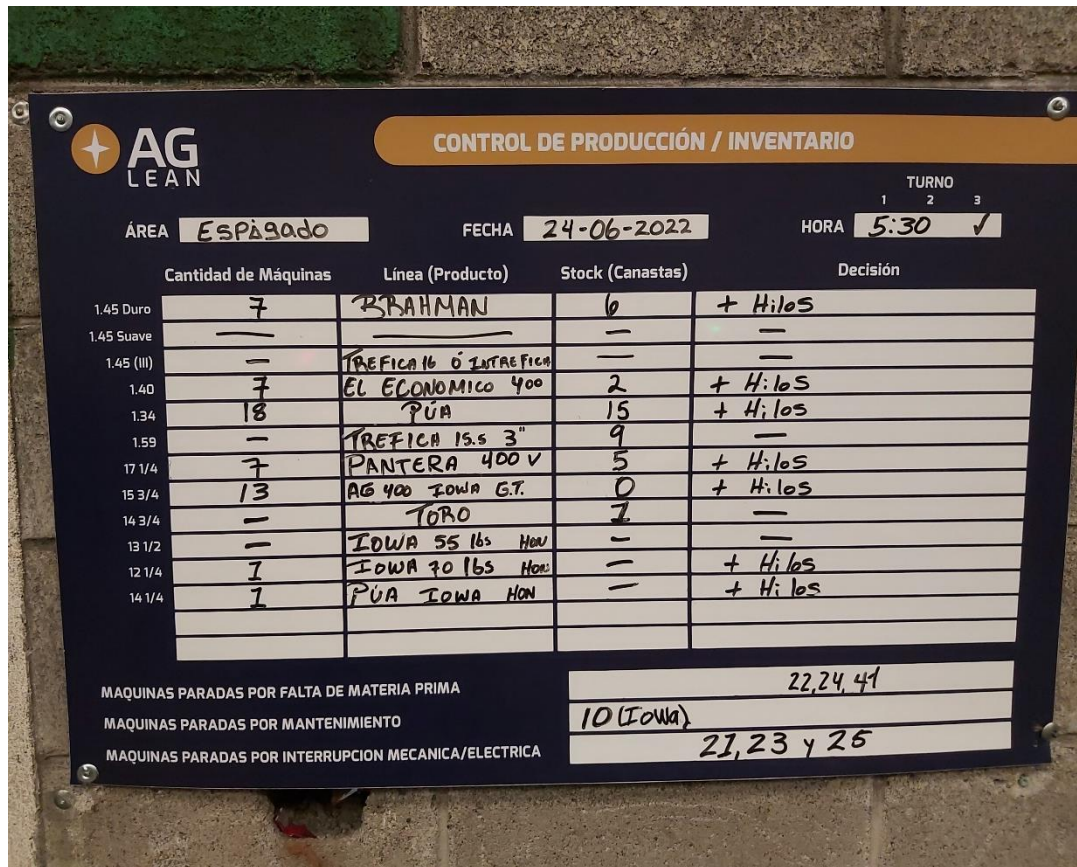 AG
LEAN
CONTROL DE PRODUCCIÓN / INVENTARIO
TURNO
1 2 3
ÁREA ESPIGADO FECHA 24-06-2022 HORA 5:30 ✓
Cantidad de Máquinas Línea (Producto) Stock (Canastas) Decisión
1.45 Duro 7 BRAHMAN 6 + Hilos
1.45 Suave — — — —
1.45 (III) — TREFICA 16 Ó INTREFICA — —
1.40 7 EL ECONOMICO 400 2 + Hilos
1.34 18 PÚA 15 + Hilos
1.59 — TREFICA 15.5 3" 9 —
17 1/4 7 PANTERA 400 V 5 + Hilos
15 3/4 13 AG 400 IOWA G.T. 0 + Hilos
14 3/4 — TORO 1 —
13 1/2 — IOWA 55 lbs HON — —
12 1/4 1 IOWA 70 lbs HON — + Hilos
14 1/4 1 PÚA IOWA HON — + Hilos
MAQUINAS PARADAS POR FALTA DE MATERIA PRIMA 22,24,41
MAQUINAS PARADAS POR MANTENIMIENTO 10 (Iowa)
MAQUINAS PARADAS POR INTERRUPCION MECANICA/ELECTRICA 21,23 y 25